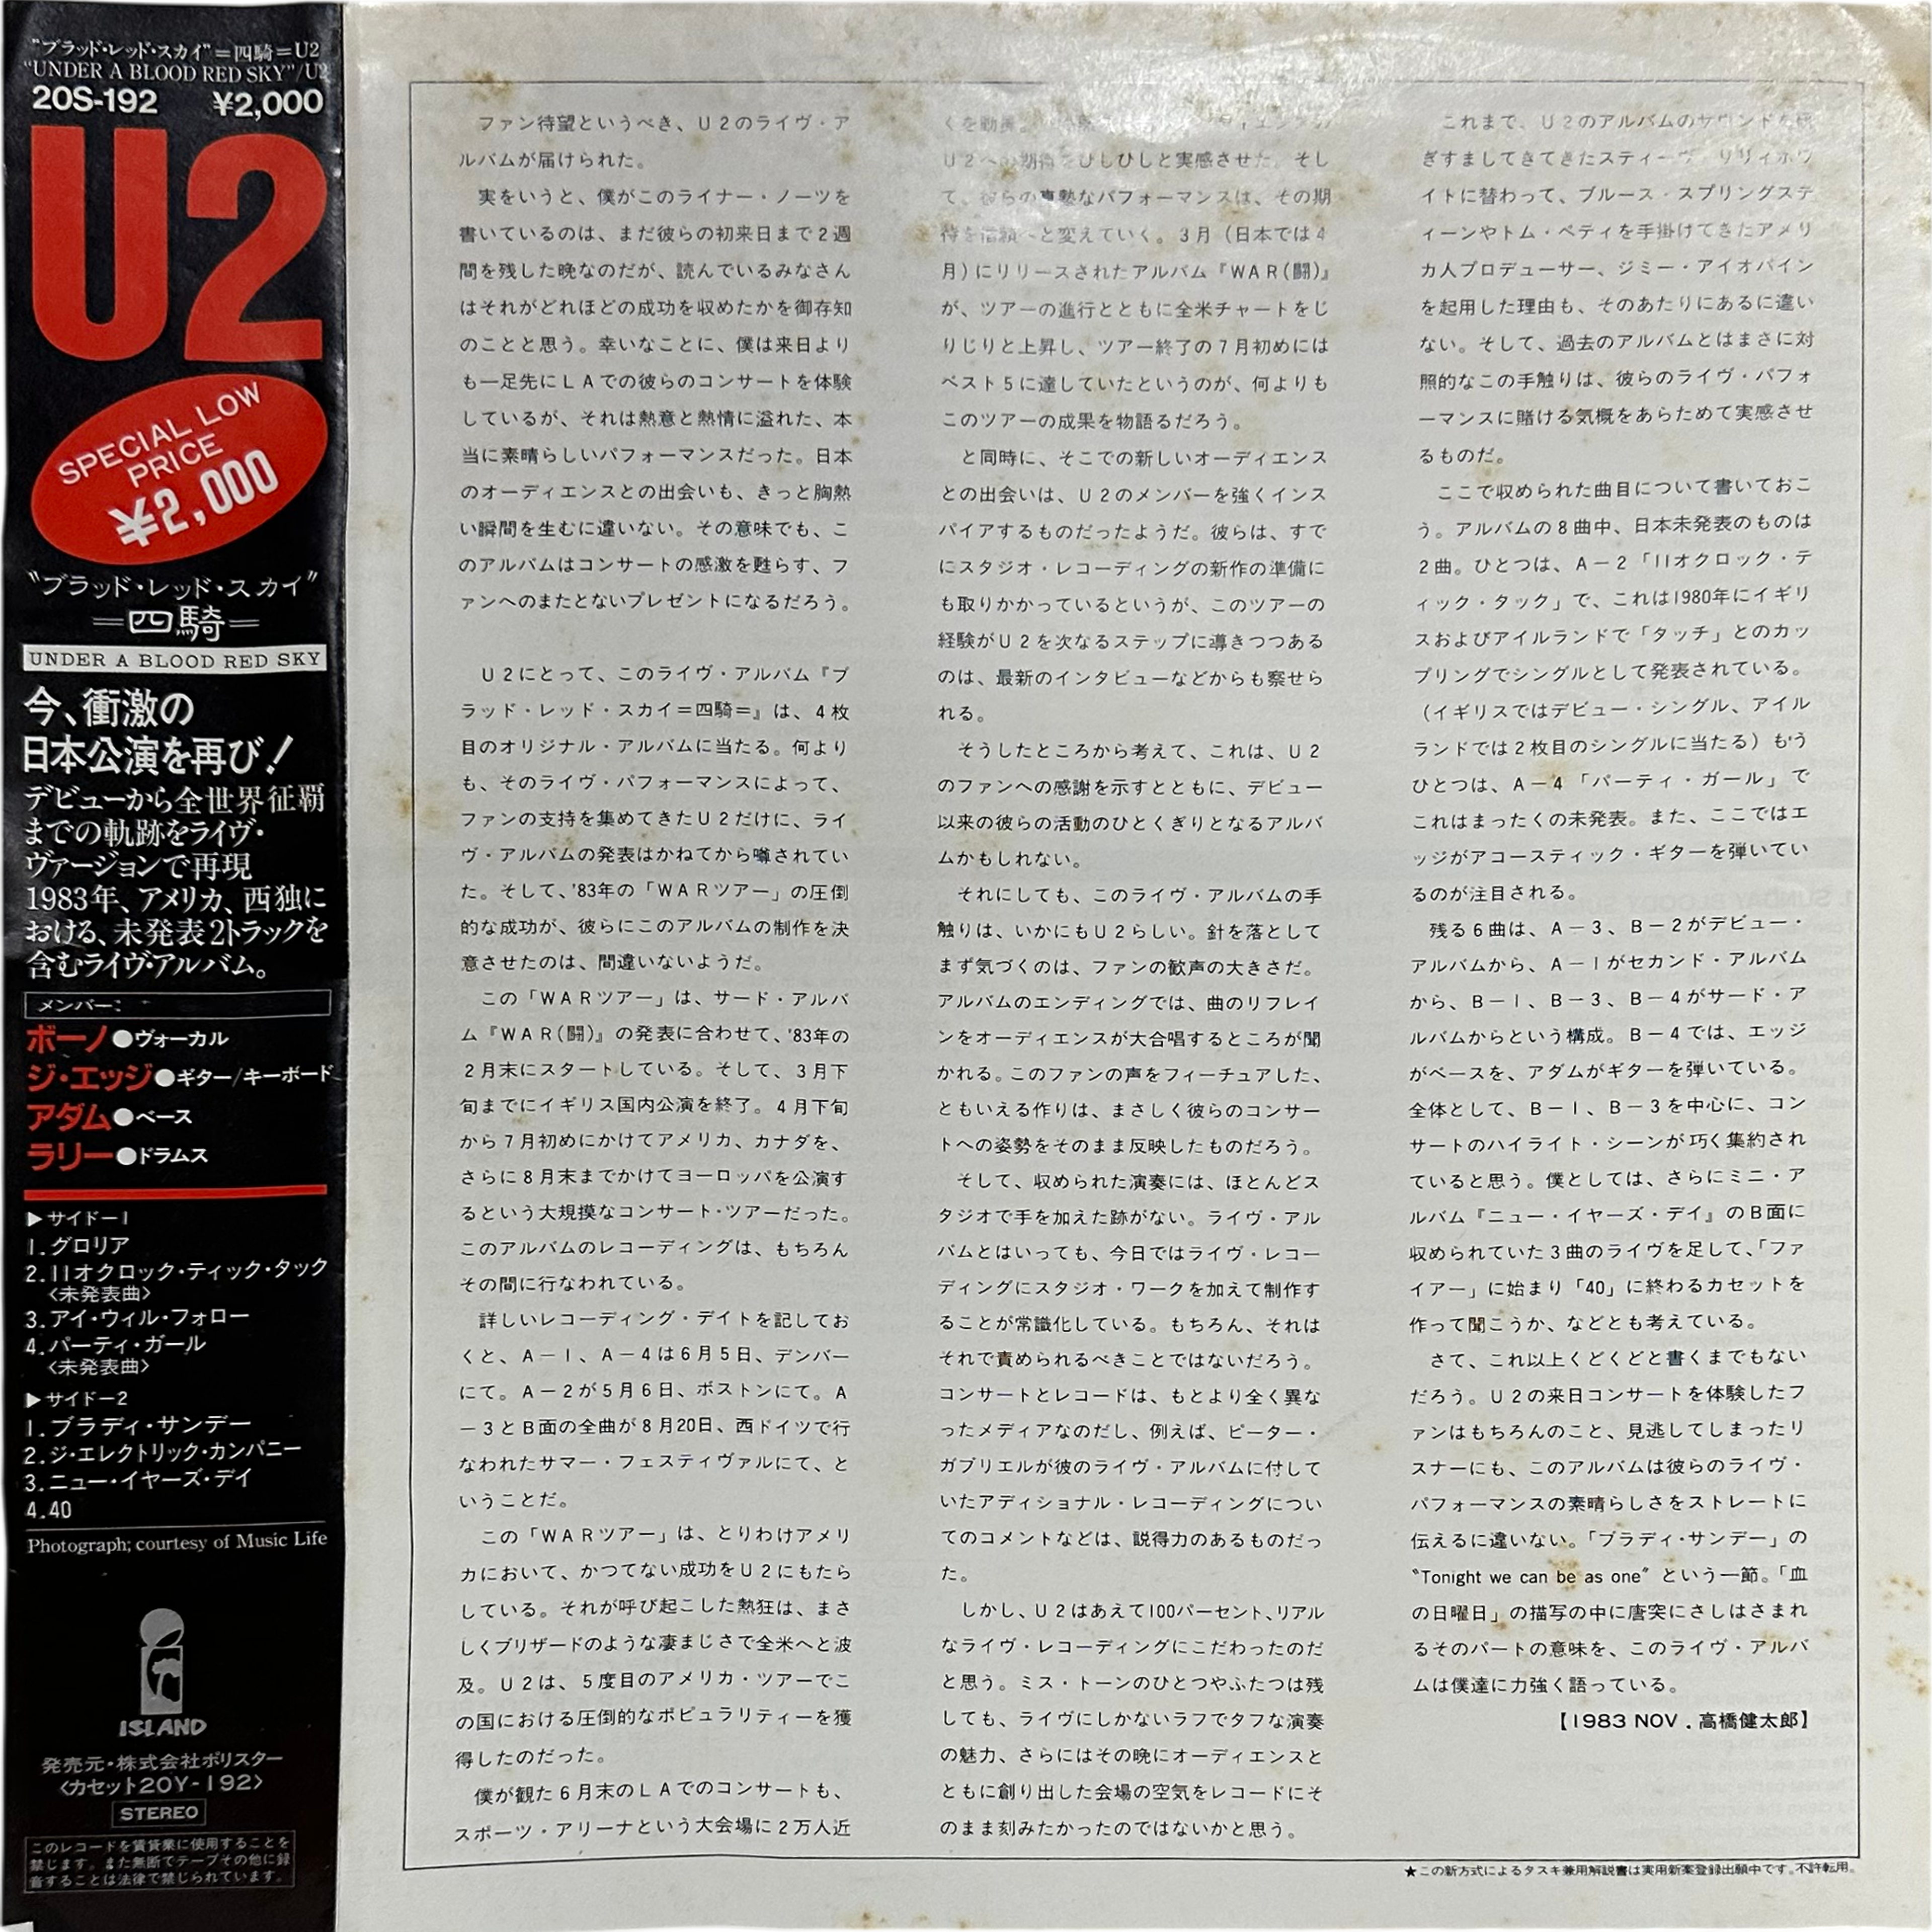 "ブラッド・レッド・スカイ"=四騎=U2
"UNDER A BLOOD RED SKY"/U2
20S-192 ¥2,000
U2
SPECIAL LOW
PRICE
¥2,000
"ブラッド・レッド・スカイ"
=四騎=
UNDER A BLOOD RED SKY
今、衝激の
日本公演を再び!
デビューから全世界征覇
までの軌跡をライヴ・
ヴァージョンで再現
1983年、アメリカ、西独に
おける、未発表2トラックを
含むライヴ・アルバム。
メンバー:
ボーノ●ヴォーカル
ジ・エッジ●ギター/キーボード
アダム●ベース
ラリー●ドラムス
▶サイドー1
1.グロリア
2.11オクロック・ティック・タック
<未発表曲>
3.アイ・ウィル・フォロー
4.パーティ・ガール
<未発表曲>
▶サイドー2
1.ブラディ・サンデー
2.ジ・エレクトリック・カンパニー
3.ニュー・イヤーズ・デイ
4.40
Photograph; courtesy of Music Life
ISLAND
発売元・株式会社ポリスター
<カセット20Y-192>
STEREO
このレコードを賃貸業に使用することを
禁じます。また無断でテープその他に録
音することは法律で禁じられています。
ファン待望というべき、U2のライヴ・ア
ルバムが届けられた。
実をいうと、僕がこのライナー・ノーツを
書いているのは、まだ彼らの初来日まで2週
間を残した晩なのだが、読んでいるみなさん
はそれがどれほどの成功を収めたかを御存知
のことと思う。幸いなことに、僕は来日より
も一足先にLAでの彼らのコンサートを体験
しているが、それは熱意と熱情に溢れた、本
当に素晴らしいパフォーマンスだった。日本
のオーディエンスとの出会いも、きっと胸熱
い瞬間を生むに違いない。その意味でも、こ
のアルバムはコンサートの感激を甦らす、フ
ァンへのまたとないプレゼントになるだろう。
U2にとって、このライヴ・アルバム『ブ
ラッド・レッド・スカイ=四騎=』は、4枚
目のオリジナル・アルバムに当たる。何より
も、そのライヴ・パフォーマンスによって、
ファンの支持を集めてきたU2だけに、ライ
ヴ・アルバムの発表はかねてから噂されてい
た。そして、'83年の「WARツアー」の圧倒
的な成功が、彼らにこのアルバムの制作を決
意させたのは、間違いないようだ。
この「WARツアー」は、サード・アルバ
ム『WAR(闘)』の発表に合わせて、'83年の
2月末にスタートしている。そして、3月下
旬までにイギリス国内公演を終了。4月下旬
から7月初めにかけてアメリカ、カナダを、
さらに8月末までかけてヨーロッパを公演す
るという大規摸なコンサート・ツアーだった。
このアルバムのレコーディングは、もちろん
その間に行なわれている。
詳しいレコーディング・デイトを記してお
くと、A-1、A-4は6月5日、デンバー
にて。A-2が5月6日、ボストンにて。A
-3とB面の全曲が8月20日、西ドイツで行
なわれたサマー・フェスティヴァルにて、と
いうことだ。
この「WARツアー」は、とりわけアメリ
カにおいて、かつてない成功をU2にもたら
している。それが呼び起こした熱狂は、まさ
しくブリザードのような凄まじさで全米へと波
及。U2は、5度目のアメリカ・ツアーでこ
の国における圧倒的なポピュラリティーを獲
得したのだった。
僕が観た6月末のLAでのコンサートも、
スポーツ・アリーナという大会場に2万人近
くを動員
U2への期待をひしひしと実感させた。そし
て、彼らの真摯なパフォーマンスは、その期
待を信頼へと変えていく。3月(日本では4
月)にリリースされたアルバム『WAR(闘)』
が、ツアーの進行とともに全米チャートをじ
りじりと上昇し、ツアー終了の7月初めには
ベスト5に達していたというのが、何よりも
このツアーの成果を物語るだろう。
と同時に、そこでの新しいオーディエンス
との出会いは、U2のメンバーを強くインス
パイアするものだったようだ。彼らは、すで
にスタジオ・レコーディングの新作の準備に
も取りかかっているというが、このツアーの
経験がU2を次なるステップに導きつつある
のは、最新のインタビューなどからも察せら
れる。
そうしたところから考えて、これは、U2
のファンへの感謝を示すとともに、デビュー
以来の彼らの活動のひとくぎりとなるアルバ
ムかもしれない。
それにしても、このライヴ・アルバムの手
触りは、いかにもU2らしい。針を落として
まず気づくのは、ファンの歓声の大きさだ。
アルバムのエンディングでは、曲のリフレイ
ンをオーディエンスが大合唱するところが聞
かれる。このファンの声をフィーチュアした、
ともいえる作りは、まさしく彼らのコンサー
トへの姿勢をそのまま反映したものだろう。
そして、収められた演奏には、ほとんどス
タジオで手を加えた跡がない。ライヴ・アル
バムとはいっても、今日ではライヴ・レコー
ディングにスタジオ・ワークを加えて制作す
ることが常識化している。もちろん、それは
それで責められるべきことではないだろう。
コンサートとレコードは、もとより全く異な
ったメディアなのだし、例えば、ピーター・
ガブリエルが彼のライヴ・アルバムに付して
いたアディショナル・レコーディングについ
てのコメントなどは、説得力のあるものだっ
た。
しかし、U2はあえて100パーセント、リアル
なライヴ・レコーディングにこだわったのだ
と思う。ミス・トーンのひとつやふたつは残
しても、ライヴにしかないラフでタフな演奏
の魅力、さらにはその晩にオーディエンスと
ともに創り出した会場の空気をレコードにそ
のまま刻みたかったのではないかと思う。
これまで、U2のアルバムのサウンドを研
ぎすましてきてきたスティーヴ・リリィホワ
イトに替わって、ブルース・スプリングステ
ィーンやトム・ペティを手掛けてきたアメリ
カ人プロデューサー、ジミー・アイオバイン
を起用した理由も、そのあたりにあるに違い
ない。そして、過去のアルバムとはまさに対
照的なこの手触りは、彼らのライヴ・パフォ
ーマンスに賭ける気概をあらためて実感させ
るものだ。
ここで収められた曲目について書いておこ
う。アルバムの8曲中、日本未発表のものは
2曲。ひとつは、A-2「11オクロック・テ
ィック・タック」で、これは1980年にイギリ
スおよびアイルランドで「タッチ」とのカッ
プリングでシングルとして発表されている。
(イギリスではデビュー・シングル、アイル
ランドでは2枚目のシングルに当たる)もう
ひとつは、A-4「パーティ・ガール」で
これはまったくの未発表。また、ここではエ
ッジがアコースティック・ギターを弾いてい
るのが注目される。
残る6曲は、A-3、B-2がデビュー・
アルバムから、A-1がセカンド・アルバム
から、B-1、B-3、B-4がサード・ア
ルバムからという構成。B-4では、エッジ
がベースを、アダムがギターを弾いている。
全体として、B-1、B-3を中心に、コン
サートのハイライト・シーンが巧く集約され
ていると思う。僕としては、さらにミニ・ア
ルバム『ニュー・イヤーズ・デイ』のB面に
収められていた3曲のライヴを足して、「ファ
イアー」に始まり「40」に終わるカセットを
作って聞こうか、などとも考えている。
さて、これ以上くどくどと書くまでもない
だろう。U2の来日コンサートを体験したフ
ァンはもちろんのこと、見逃してしまったリ
スナーにも、このアルバムは彼らのライヴ・
パフォーマンスの素晴らしさをストレートに
伝えるに違いない。「ブラディ・サンデー」の
"Tonight we can be as one" という一節。「血
の日曜日」の描写の中に唐突にさしはさまれ
るそのパートの意味を、このライヴ・アルバ
ムは僕達に力強く語っている。
【1983 NOV . 高橋健太郎】
★この新方式によるタスキ兼用解説書は実用新案登録出願中です。不許転用。